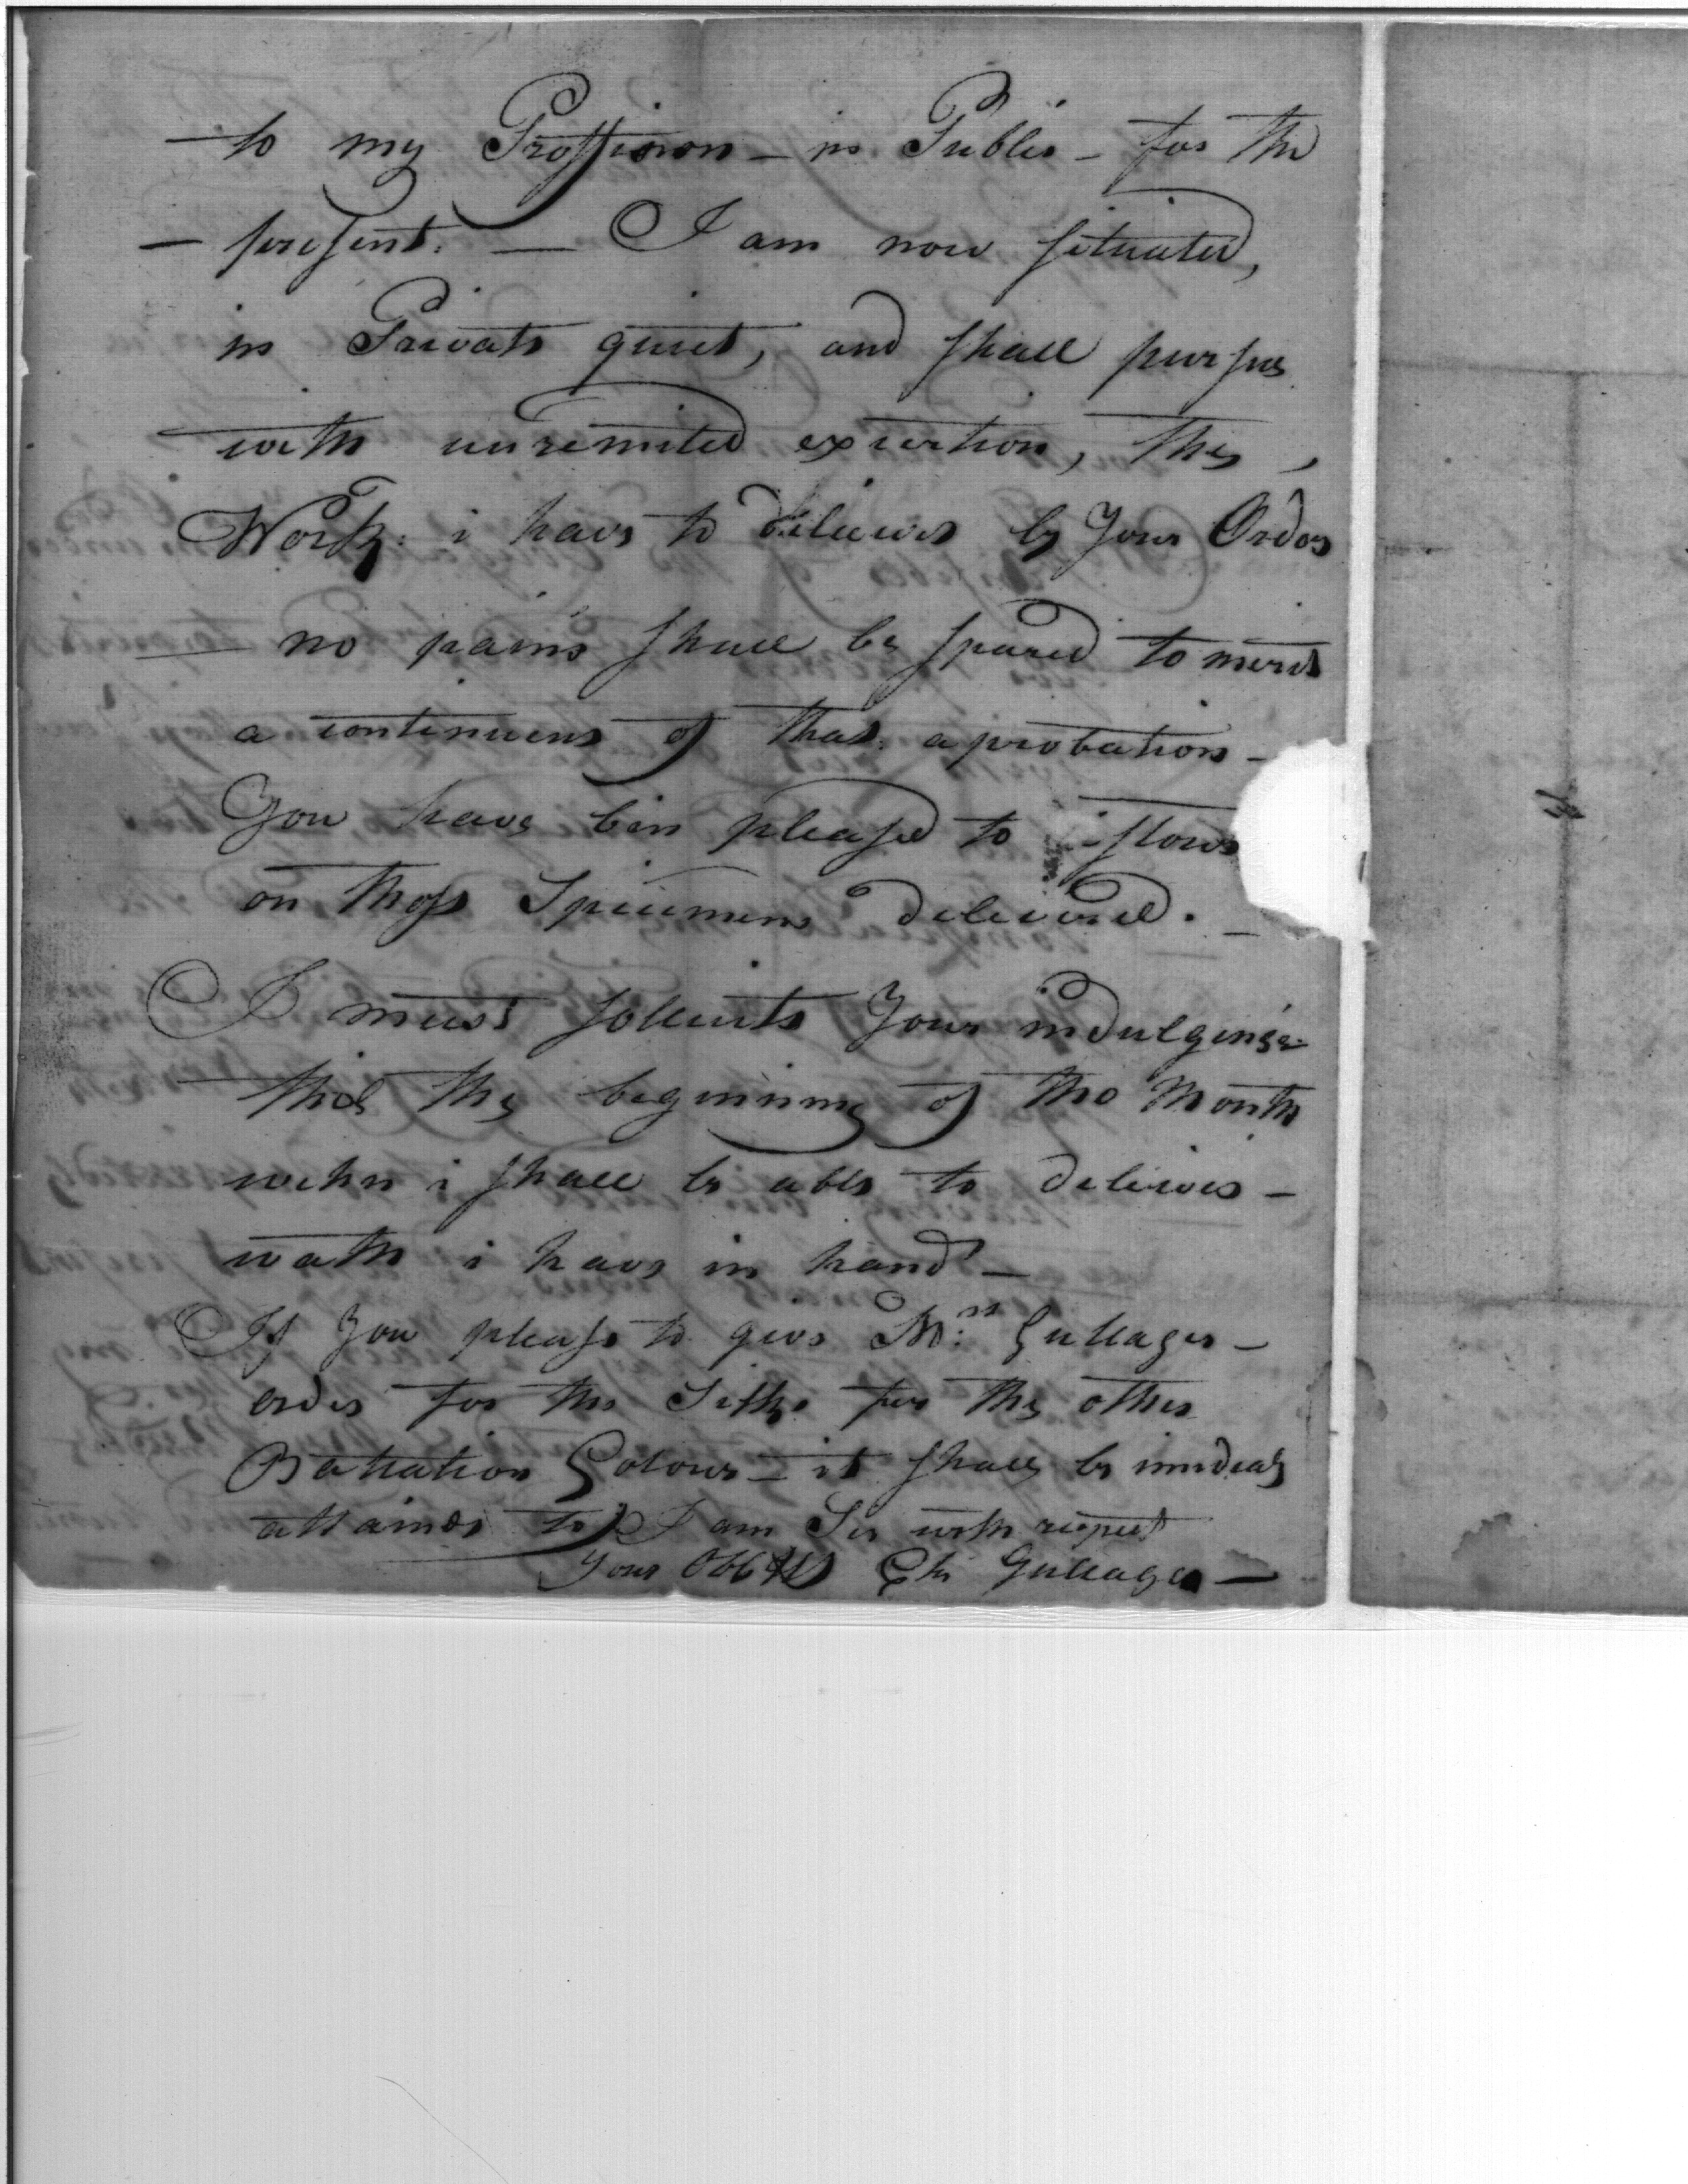 to my Proffision - in Public - for the
- present. - I am now situated,
in Private quiet, and shall pursue
with unremited exertion, the,
Work: i have to deliever by Your Order
- no pains shall be spared to merit
a continuens of that aprobation -
You have bin pleased to stow
on those Specimens delivered. -
I must sollicite Your indulgense
till the beginning of the Month
wehn i shall be able to deliever -
wath i have in hand -
If You please to give Mrs Gullager -
order for the Silks for the other
Battation Colours - it shall be imediatly
attainded to I am Sir with respect
Your Obbt Chr Gullager -